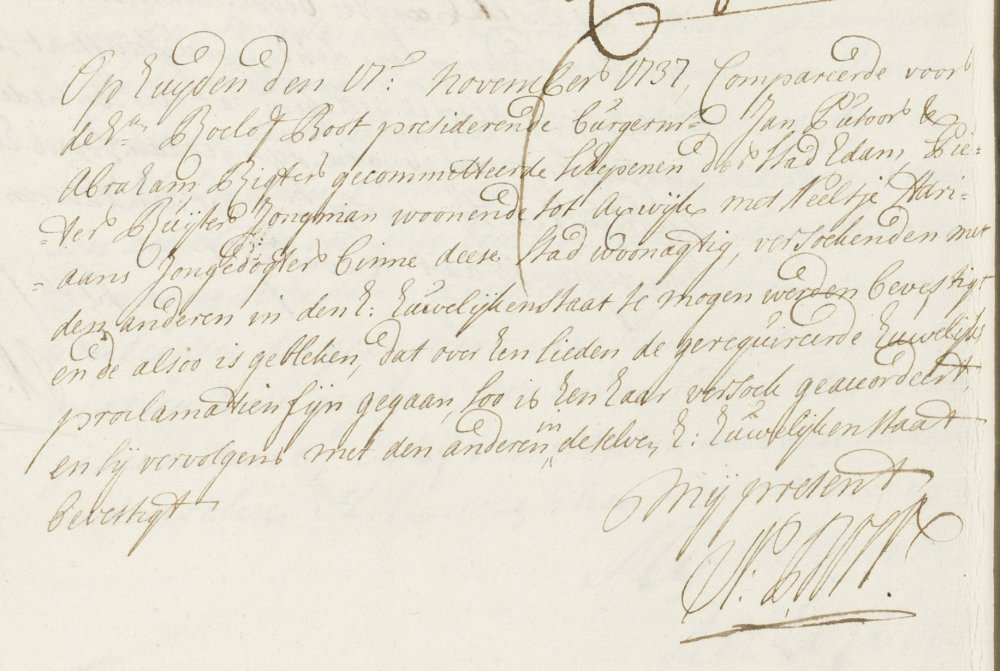 Op huyden den 17.e november 1737, Compareerde voor
de Hrn Roelof Boot presiderende burgermr. Jan Putoor &
Abraham Rigter gecommitteerde Schepenen der Stad Edam, Pie=
=ter Ruyter Jongman woonende tot Axwijk met Neeltje Hari=
=aans Jongedogter binne deese Stad woonagtig, versoekenden met
den anderen in den h: huwelijken staat te mogen werden bevestigt
ende alsoo is gebleken, dat over hen lieden de gerequireerde huwelijks
proclamatien sijn gegaan, soo is hen haar versoek geaccordeert,
en sij vervolgens met den anderen in deselve h: huwelijken staat
bevestigt
Mij present